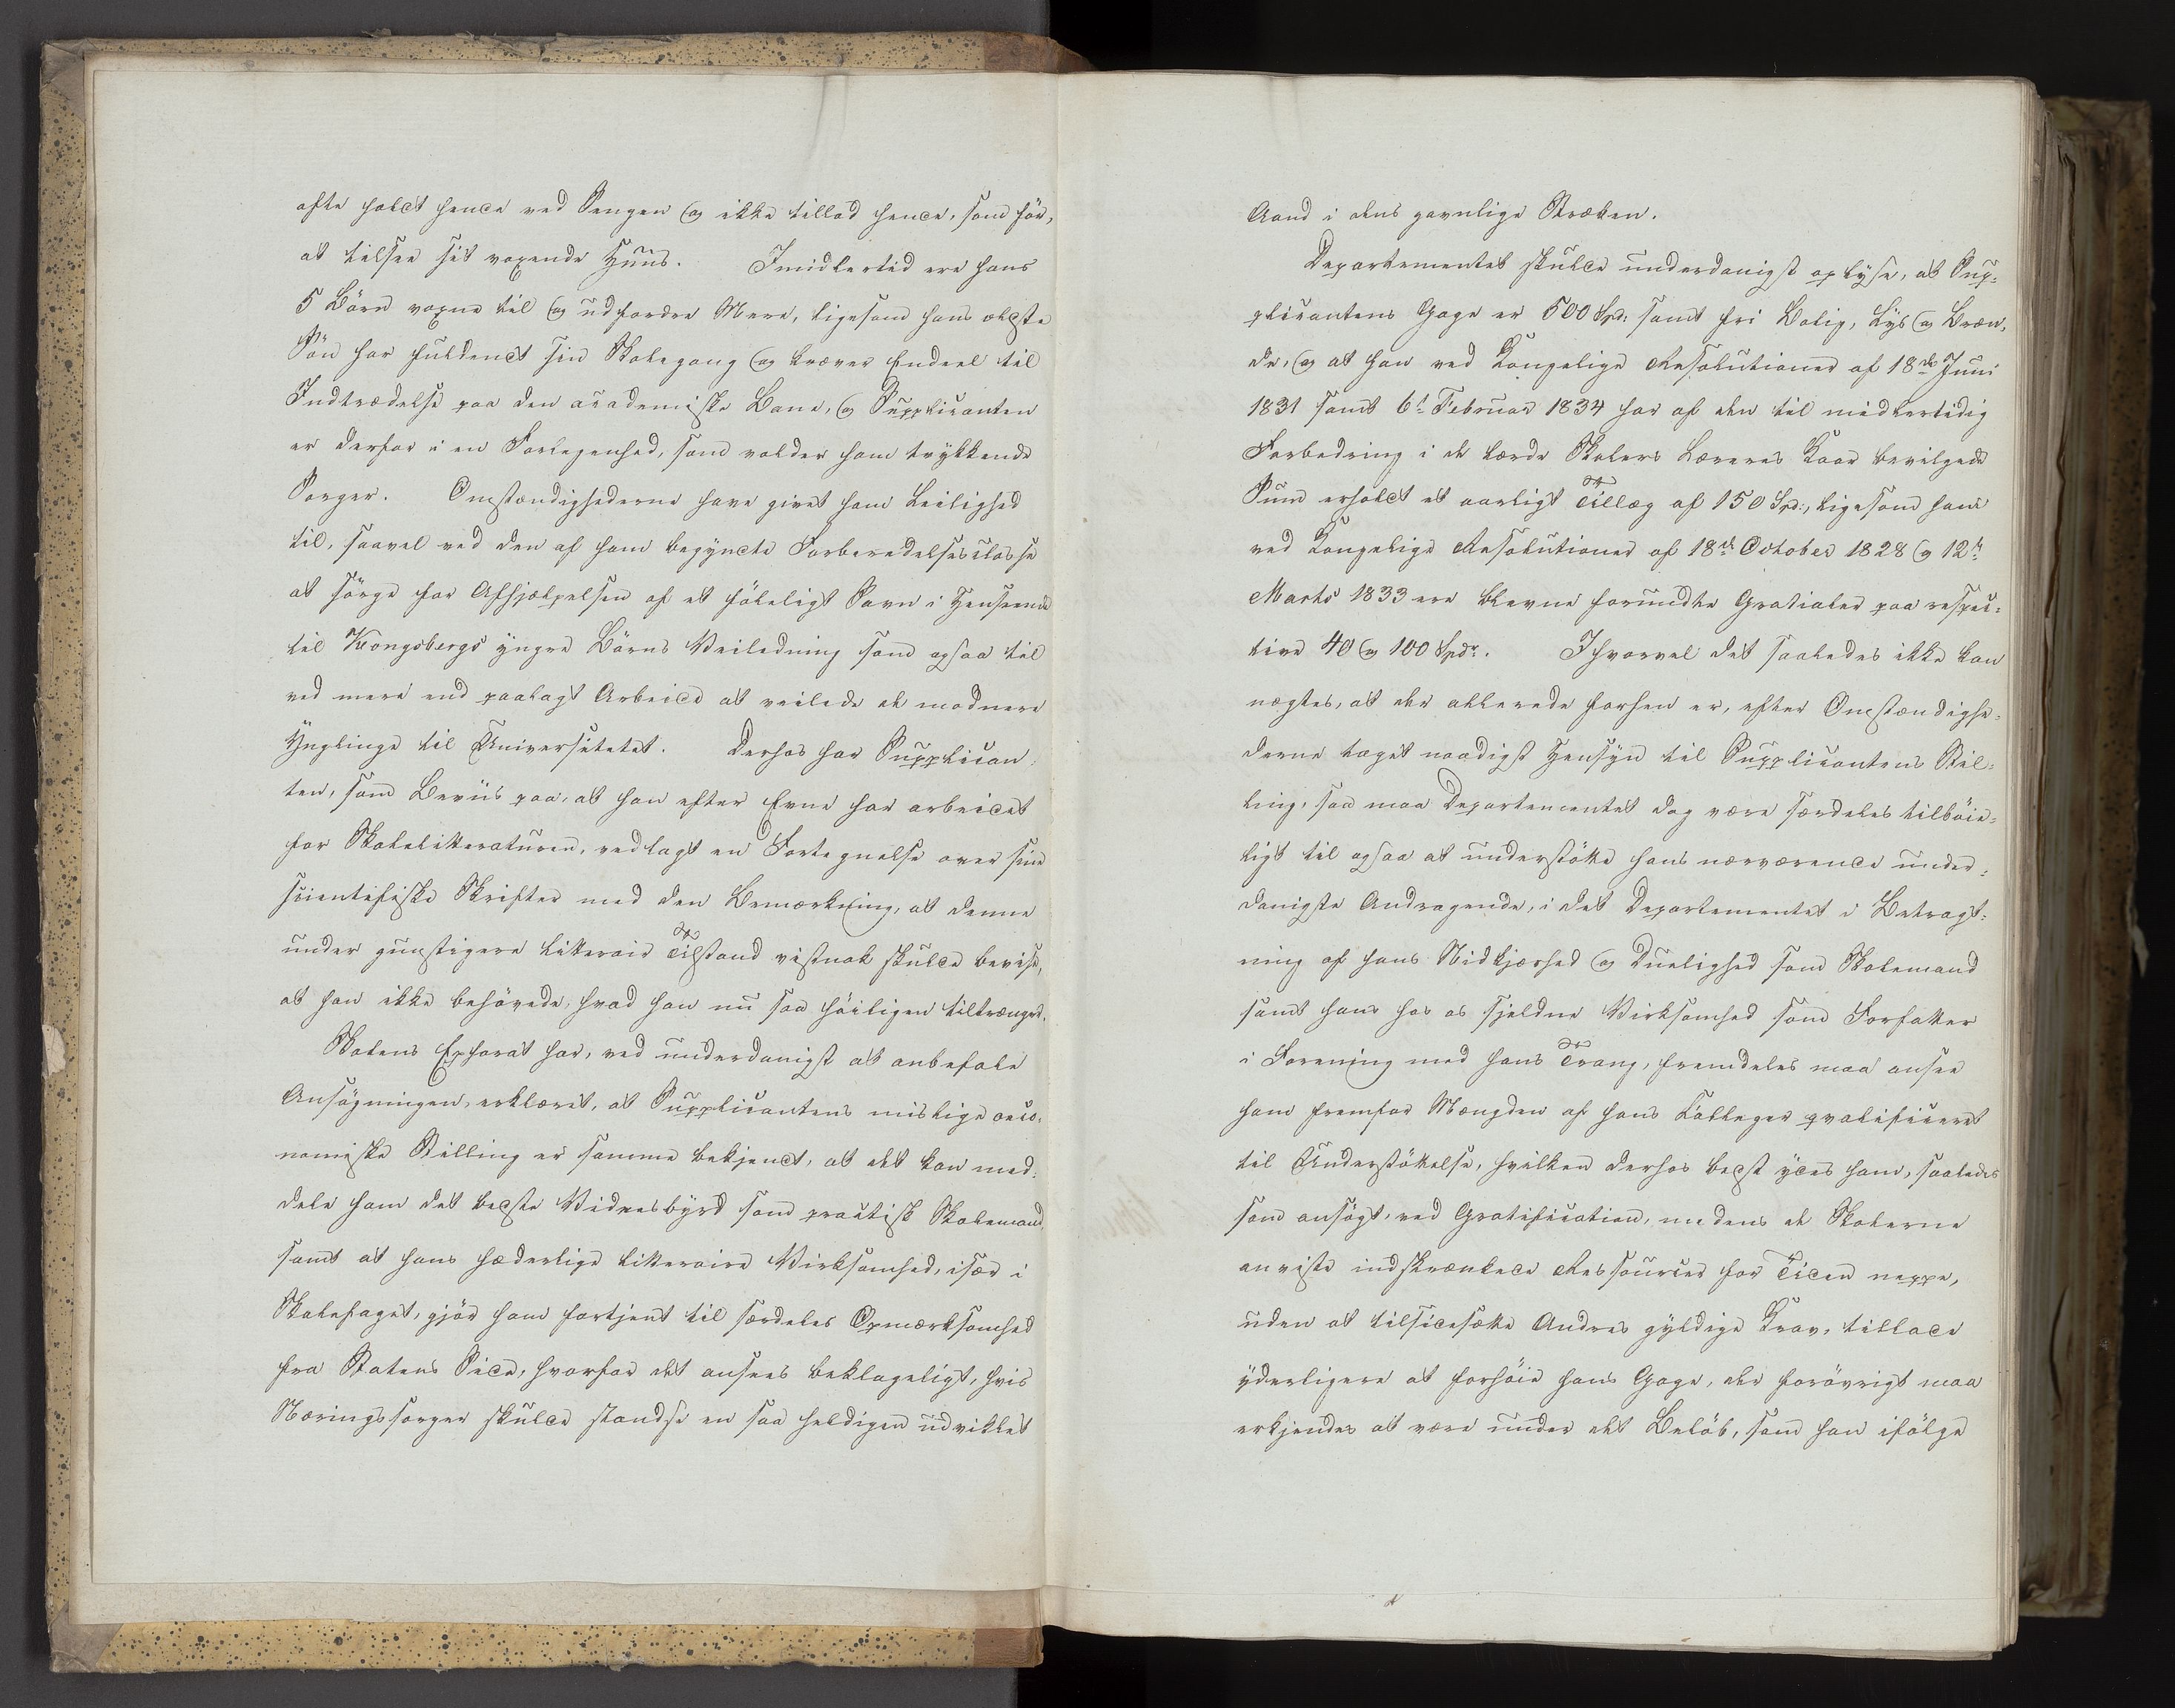 ofte holdt hende ved Sengen og ikke tillod hende, som før,
at tilsee sit voxende Huus. Imidlertid ere hans
5 Börn voxne til og udfordre Mere, ligesom hans ældste
Sön har fuldendt sin Skolegang og kræver Endeel til
Indtrædelse paa den academiske Bane, og Supplicanten
er derfor i en Forlegenhed, som volder ham trykkende
Sorger. Omstændighederne have givet ham Leilighed
til, saavel ved den af ham begyndte Forberedelsesclasse
at sörge for Afhjælpelsen af et föleligt Savn i Henseende
til Kongsbergs yngre Börns Veiledning som ogsaa til
ved mere end paalagt Arbeide at veilede de modnere
Ynglinge til Universitetet. Derhos har Supplican-
ten, som Beviis paa, at han efter Evne har arbeidet
for Skolelitteraturen, vedlagt en Fortegnelse over sine
scientifiske Skrifter med den Bemærkning, at denne
under gunstigere litterair Tilstand vistnok skulde bevise,
at han ikke behövede, hvad han nu saa höiligen tiltrænger.
Skolens Ephorat har, ved underdanigst at anbefale
Ansögningen, erklæret, at Supplicantens mislige oeco-
nomiske Stilling er samme bekjendt, at det kan med-
dele ham det bedste Vidnesbyrd som practisk Skolemand
samt at hans hæderlige litteraire Virksomhed, især i
Skolefaget, gjör ham fortjent til særdeles Opmærksomhed
fra Statens Side, hvorfor det ansees beklageligt, hvis
Næringssorger skulde standse en saa heldigen udviklet
Aand i dens gavnlige Stræben.
Departementet skulde underdanigst oplyse, at Sup-
plicantens Gage er 500 Spd: samt fri Bolig, Lys og Bræn-
de, og at han ved Kongelige Resolutioner af 18de Juni
1831 samt 6te Februar 1834 har af den til midlertidig
Forbedring i de lærde Skolers Læreres Kaar bevilgede
Sum erholdt et aarligt Tillæg af 150 Spd:, ligesom ham
ved Kongelige Resolutioner af 18de October 1828 og 12te
Marts 1833 ere blevne forundte Gratialer paa respec-
tive 40 og 100 Spdr. Ihvorvel det saaledes ikke kan
nægtes, at der allerede forhen er, efter Omstændighe-
derne taget naadigst Hensyn til Supplicantens Stil-
ling, saa maa Departementet dog være særdeles tilböie-
ligt til ogsaa at understötte hans nærværende under-
danigste Andragende, i det Departementet i Betragt-
ning af hans Nidkjærhed og Duelighed som Skolemand
samt hans hos os sjeldne Virksomhed som Forfatter
i Forening med hans Trang, fremdeles maa ansee
ham fremfor Mængden af hans Colleger qvalificeret
til Understöttelse, hvilken derhos bedst ydes ham, saaledes
som ansögt, ved Gratification, medens de Skolerne
anviste indskrænkede Ressourcer for Tiden neppe,
uden at tilsidesætte Andres gyldige Krav, tillade
yderligere at forhöie hans Gage, der forövrigt maa
erkjendes at være under det Belöb, som han ifölge